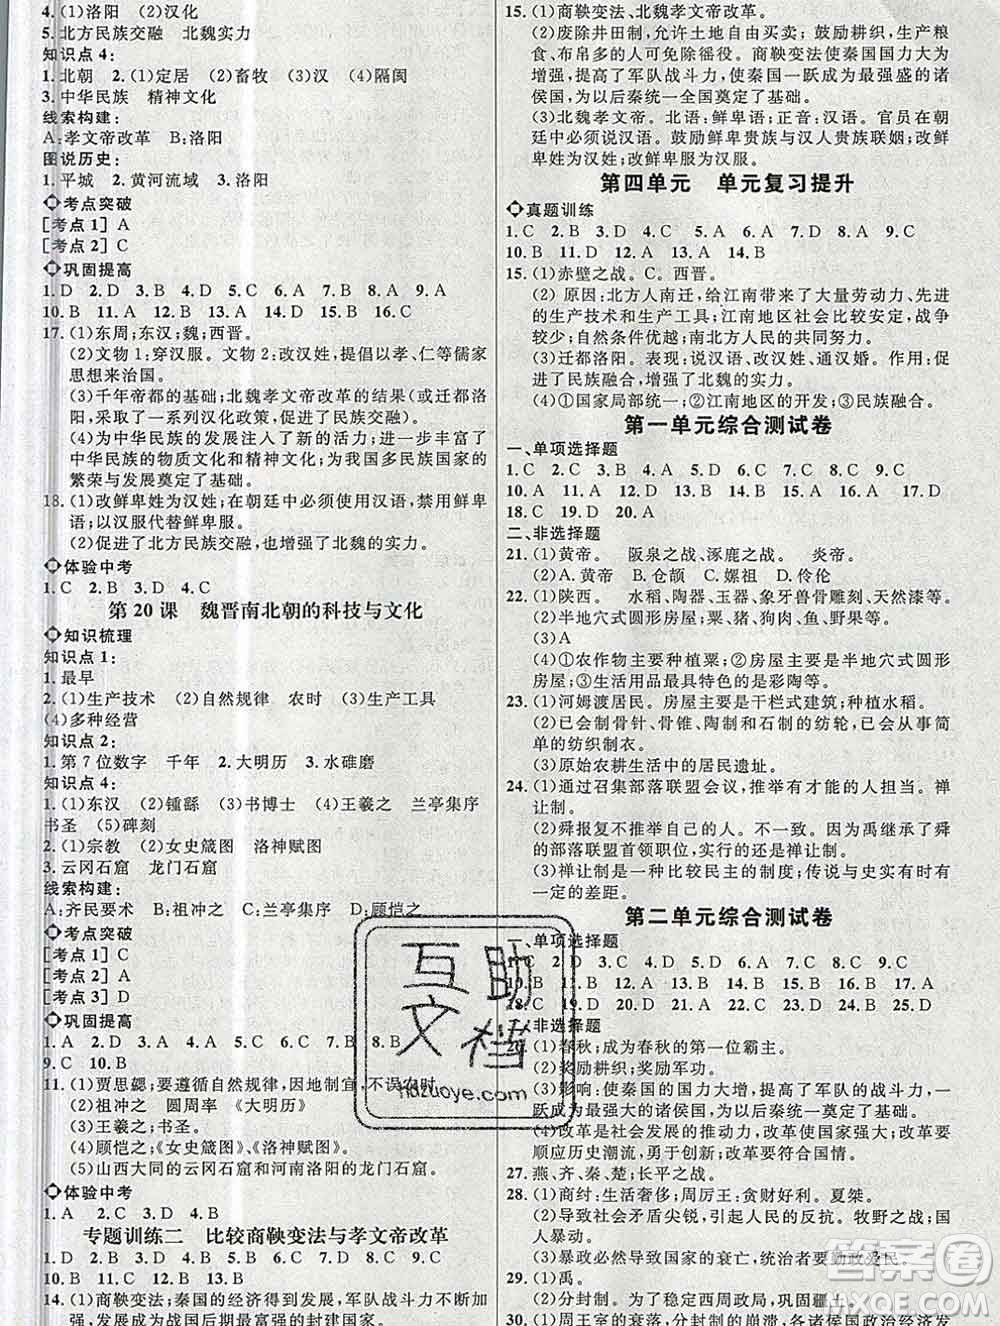 4.(1)洛阳 (2)汉化
5.北方民族交融 北魏实力
知识点 4:
1.北朝 2.(1)定居 (2)畜牧 (3)汉 (4)隔阂
3.中华民族 精神文化
线索构建:
A:孝文帝改革 B:洛阳
图说历史:
1.平城 2.黄河流域 3.洛阳
考点突破
[考点 1] A
[考点 2] C
巩固提高
1.D 2.D 3.B 4.C 5.A 6.B 7.C 8.A 9.A
10.B 11.A 12.B 13.A 14.D 15.B 16.A
17.(1)东周;东汉;魏;西晋。
(2)文物 1:穿汉服。文物 2:改汉姓,提倡以孝、仁等儒家
思想来治国。
(3)千年帝都的基础;北魏孝文帝改革的结果(或迁都洛
阳,采取了一系列汉化政策,促进了民族交融)。
(4)为中华民族的大家庭注入了新的活力;进一步丰富了
中华民族的物质文化和精神文化;为我国多民族国家的
繁荣与发展奠定了基础。
18.(1)改鲜卑姓为汉姓;在朝廷中必须使用汉语,禁用鲜卑
语;以汉服代替鲜卑服。
(2)促进了北方民族交融,也增强了北魏的实力。
体验中考
1.C 2.B 3.D 4.C
第 20 课 魏晋南北朝的科技与文化
知识梳理
知识点 1:
1.最早
2.(1)生产技术 (2)自然规律 农时 (3)生产工具
(4)多种经营
知识点 2:
1.第 7 位数字 千年 2.大明历 3.水碓磨
知识点 4:
1.(1)东汉 (2)锺繇 (3)书博士 (4)王羲之 兰亭集序
书圣 (5)碑刻
2.(1)宗教 (2)女史箴图 洛神赋图
3.云冈石窟 龙门石窟
线索构建:
A:齐民要术 B:祖冲之 C:兰亭集序 D:顾恺之
考点突破
[考点 1] C
[考点 2] A
[考点 3] D
巩固提高
1.A 2.D 3.A 4.D 5.B 6.C
9.C 10.B
11.(1)贾思勰;要遵循自然规律,因地制宜,不误农时。
(2)祖冲之 圆周率 《大明历》
(3)王羲之;书圣。
(4)顾恺之;《女史箴图》《洛神赋图》。
(5)山西大同的云冈石窟和河南洛阳的龙门石窟。
体验中考
1.A 2.C 3.D 4.B
专题训练二 比较商鞅变法与孝文帝改革
1.D 2.D 3.C 4.D 5.A 6.D 7.A 8.C 9.C
10.B 11.B 12.B 13.B
14.(1)商鞅变法;秦国的经济得到发展,军队战斗力不断加
强,发展成为战国后期最富强的封建国家。
15.(1)商鞅变法、北魏孝文帝改革。
(2)废除井田制,允许土地自由买卖。鼓励耕织,生产粮
食、布帛多的人可免除徭役。商鞅变法使秦国国力大为
增强,提高了军队战斗力,使秦国一跃成为最强盛的诸
侯国,为以后秦统一全国奠定了基础。
(3)北魏孝文帝。北语:鲜卑语;正音:汉语。官员在朝
廷中必须说汉语。鼓励鲜卑贵族与汉人贵族联姻;改鲜
卑姓为汉姓;改鲜卑服为汉服。
第四单元 单元复习提升
真题训练
1.C 2.B 3.D 4.C 5.A 6.D 7.D 8.C 9.C
10.B 11.D 12.B 13.A 14.B
15.(1)赤壁之战。C。西晋。
(2) 原因:北方人南迁,给江南带来了大量劳动力、先进
的生产技术和生产工具;江南地区社会比较安定,战争
较少;自然条件优越;南北方人民的共同努力。
(3)迁都洛阳。表现:说汉语、改汉姓、通汉婚。作用:促
进了民族融合,增强了北魏的实力。
(4)①国家局部统一;②江南地区的开发;③民族融合。
第一单元综合测试卷
一、单项选择题
1.C 2.C 3.D 4.D 5.D 6.C 7.B 8.C 9.C
10.A 11.C 12.A 13.C 14.A 15.C 16.A 17.D
18.C 19.D 20.A
二、非选择题
21.(1)黄帝。 阪泉之战、涿鹿之战。 炎帝。
(2)A.黄帝 B.仓颉 C.嫘祖 D.伶伦
22.(1)陕西。 水稻、陶器、玉器、象牙兽骨雕刻、天然漆等。
(2)半地穴式圆形房屋;粟、猪、狗肉、鱼、野果等。
(3)A
(4)①农作物主要种植粟;②房屋主要是半地穴式圆形
房屋;③生活用品最具特色的是彩陶等。
23.(1)河姆渡居民。房屋主要是干栏式建筑;种植水稻。
(2)已会制骨针、骨锥、陶制和石制的纺轮,已会从事简
单的纺织制衣。
(3)原始农耕生活中的居民遗址。
24.(1)通过召集部落联盟会议,推举有才能的人担当。禅
让制。
(2)舜报复不推举自己的人。不一致。因为禹继承了舜
的部落联盟首领职位,实行的还是禅让制。
(3)禅让制是一种比较民主的制度;传说与史实有一
定的差距。
第二单元综合测试卷
一、单项选择题
1.C 2.D 3.D 4.C 5.D 6.A 7.B 8.C 9.C
10.B 11.A 12.B 13.C 14.A 15.A 16.C 17.C
18.C 19.D 20.D 21.D 22.A 23.B 24.B 25.D
二、非选择题
26.(1)春秋;成为春秋的第一位霸主。
(2)奖励耕织;奖励军功。
(3)影响:使秦国的国力大增,提高了军队的战斗力,一
跃成为最强大的诸侯国,为以后统一六国奠定了基础。
(4)改革是社会发展的推动力,改革是强国之路;要顺应
历史潮流,勇于创新;改革要符合国情。
27.燕、齐、秦、楚;长平之战。
28.(1)商纣:生活奢侈;周厉王:贪财好利。夏桀。
(2)导致社会矛盾尖锐,引起人民的反抗。牧野之战,
国人暴动。
(3)暴政必然导致国家的衰亡,统治者要勤政爱民。
29.(1)禹。
(2)分封制。为了稳定西周政局,巩固疆土。
30.(1)周王室的衰微,分封制的崩溃;各诸侯国政治经济发
互助文档
hdzuoye.com
答案圈
MXQE.COM